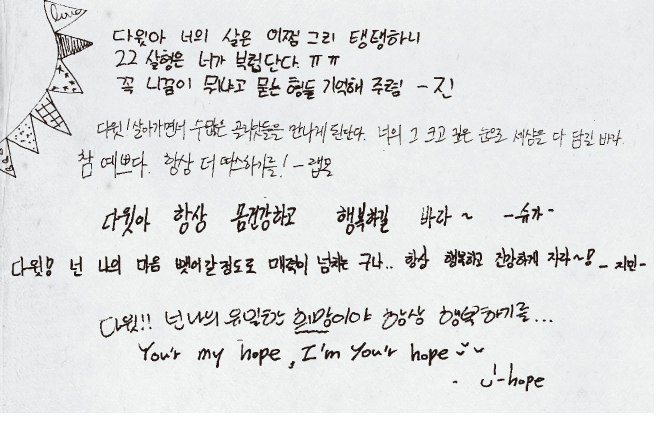 love
다윗아 너의 살은 어쩜 그리 탱탱하니
22살형은 너가 부럽단다. ㅠㅠ
꼭 니꿈이 뭐냐고 묻는 형들 기억해 주렴 - 진
다윗! 살아가면서 수많은 골리앗들을 만나게 된단다. 너의 그 크고 깊은 눈으로 세상을 다 담길 바라.
참 예쁘다. 항상 더 따스하기를! - 랩몬
다윗아 항상 몸건강하고 행복하길 바라~ -슈가-
다윗! 넌 나의 마음 뺏어갈정도로 매력이 넘치는 구나.. 항상 행복하고 건강하게 자라~! - 지민-
다윗!! 넌 나의 유일한 희망이야 항상 행복하기를...
You'r my hope, I'm You'r hope
j-hope